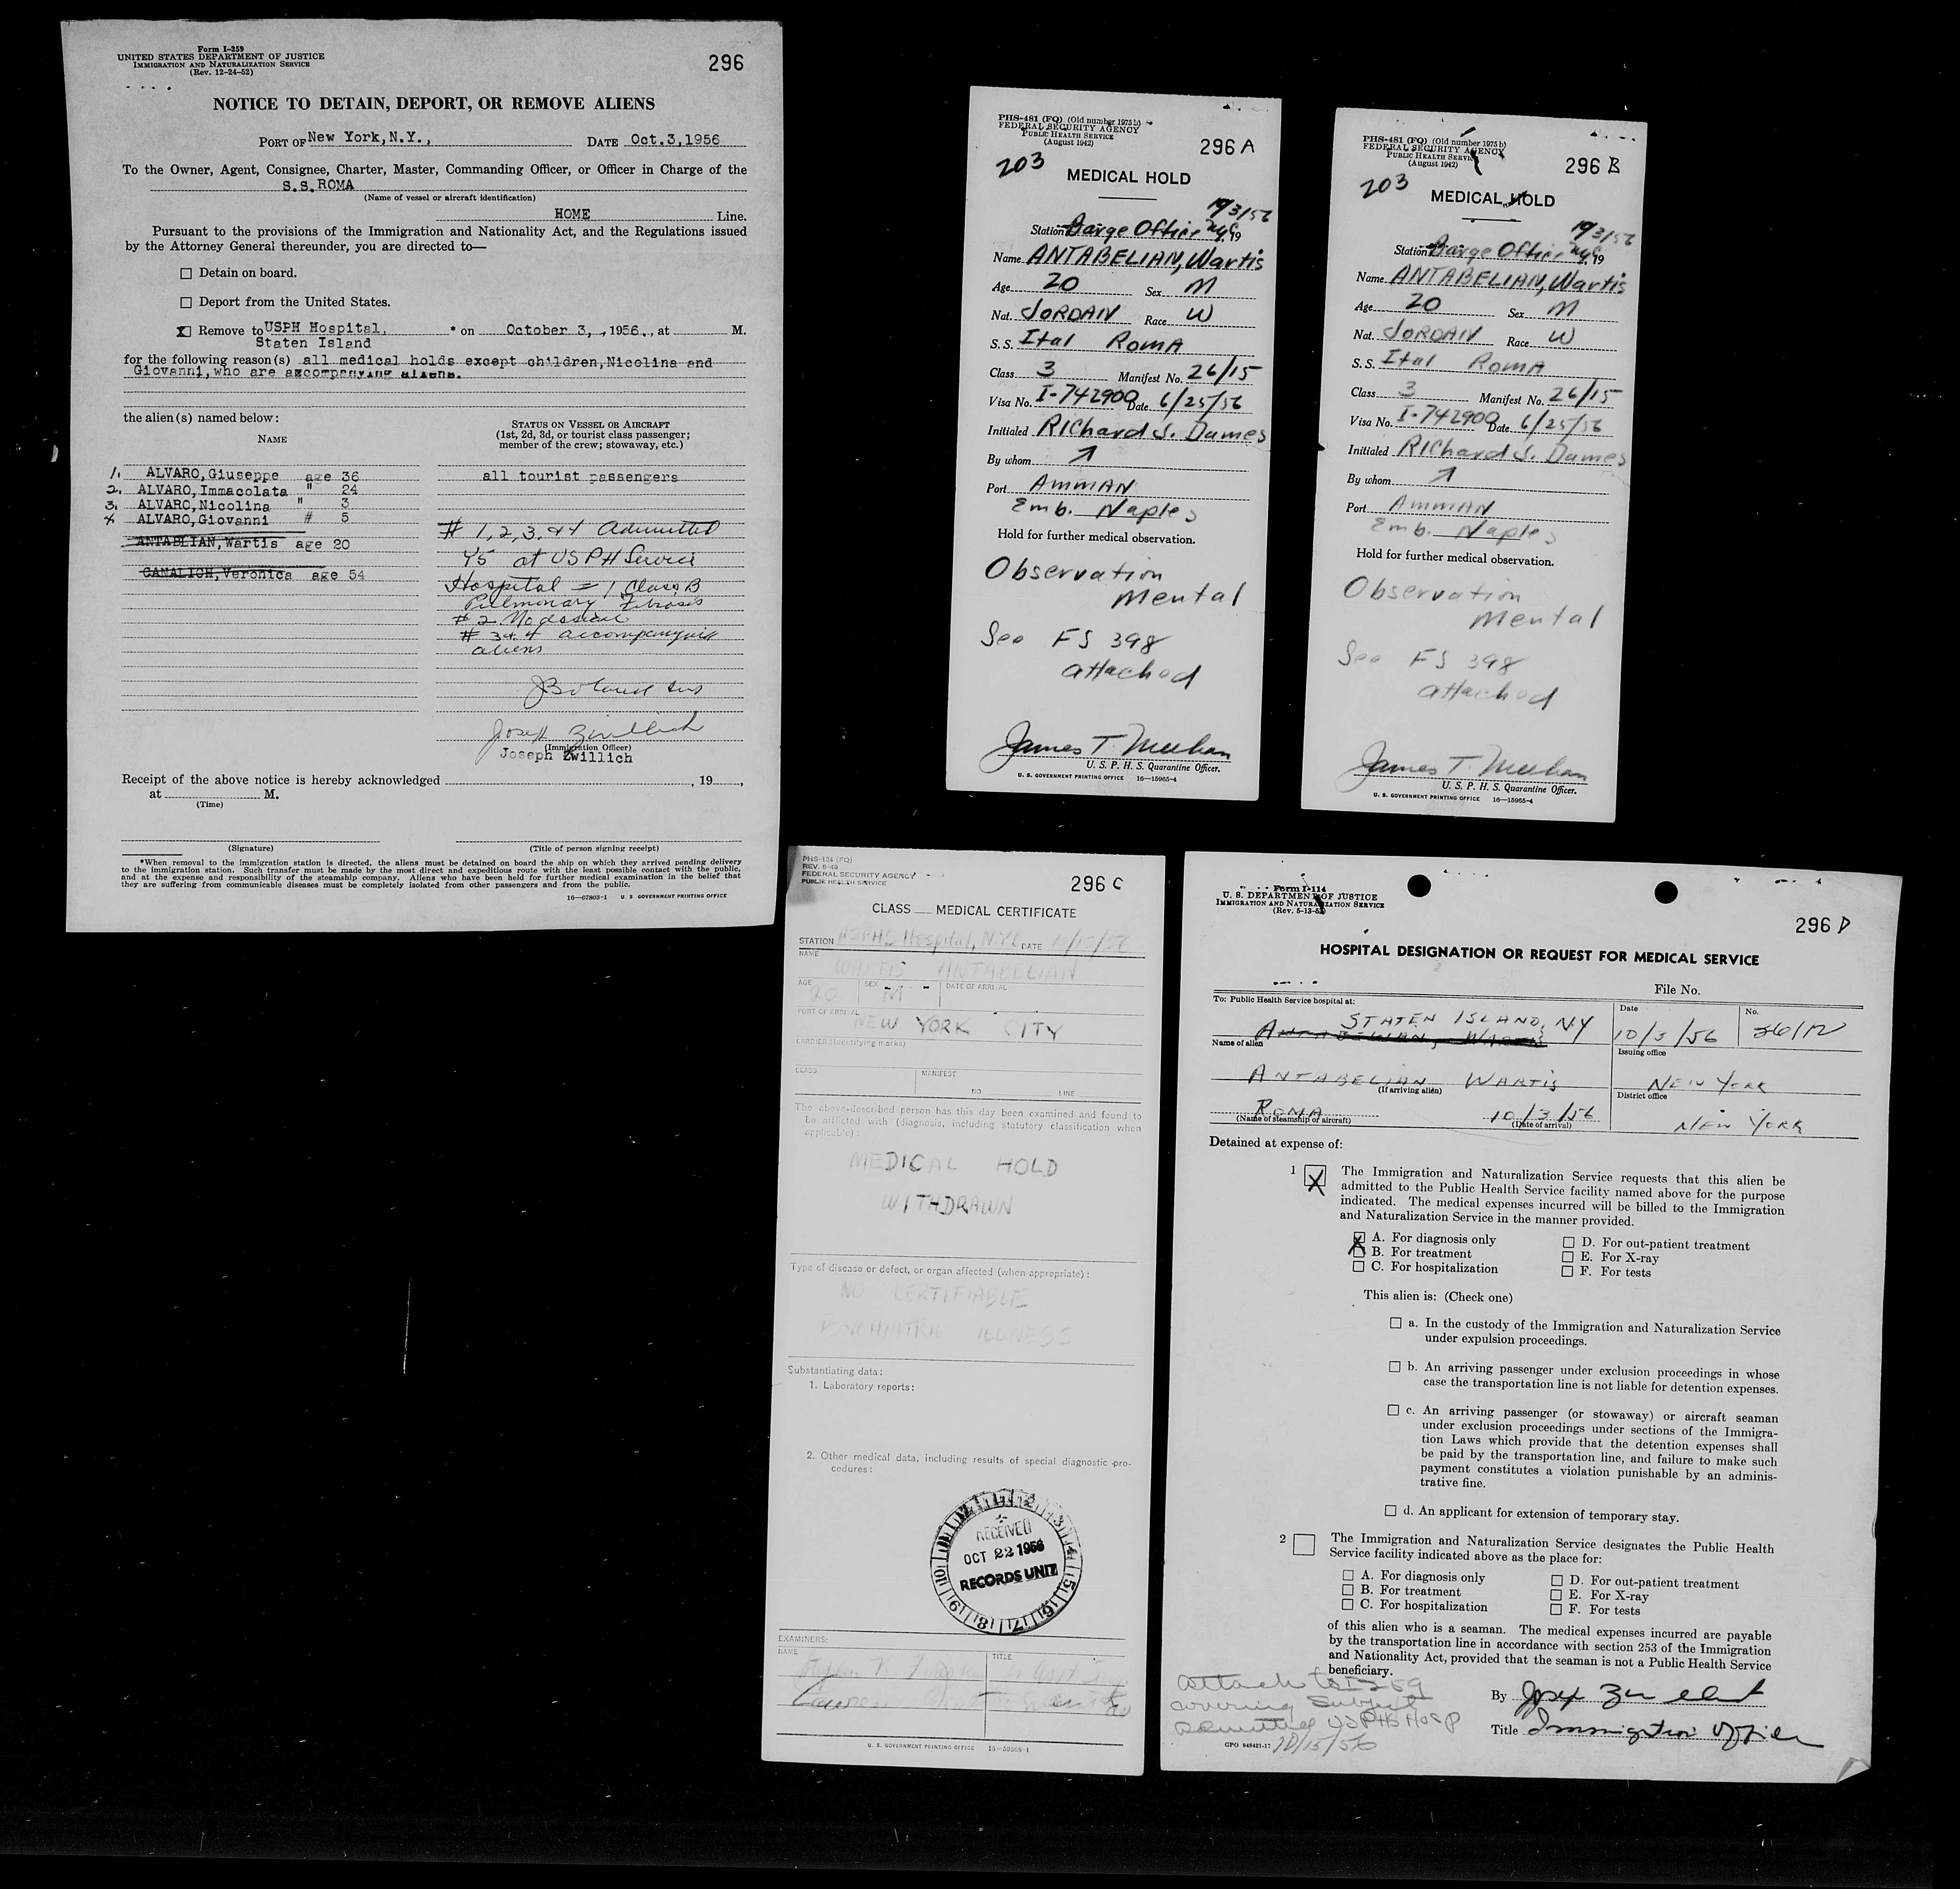 Form I-259
UNITED STATES DEPARTMENT OF JUSTICE
IMMIGRATION AND NATURALIZATION SERVICE
(Rev. 12-24-52)
296
NOTICE TO DETAIN, DEPORT, OR REMOVE ALIENS
PORT OF New York,N.Y., DATE Oct.3,1956
To the Owner, Agent, Consignee, Charter, Master, Commanding Officer, or Officer in Charge of the
S.S.ROMA
(Name of vessel or aircraft identification)
HOME Line.
Pursuant to the provisions of the Immigration and Nationality Act, and the Regulations issued
by the Attorney General thereunder, you are directed to—
☐ Detain on board.
☐ Deport from the United States.
☒ Remove to USPH Hospital, * on October 3, , 1956., at M.
Staten Island
for the following reason(s) all medical holds except children,Nicolina and
Giovanni,who are accompanying aliens.
the alien(s) named below:
NAME
STATUS ON VESSEL OR AIRCRAFT
(1st, 2d, 3d, or tourist class passenger;
member of the crew; stowaway, etc.)
1. ALVARO,Giuseppe age 36
2. ALVARO,Immacolata " 24
3. ALVARO,Nicolina " 3
4 ALVARO,Giovanni # 5
ANTABLIAN,Wartis age 20
CANALICH,Veronica age 54
all tourist passengers
# 1,2,3,&4 Admitted
at USPH Service
Hospital = 1 Class B
Pulmonary Fibrosis
# 2
# 3&4 accompanying
aliens
Joseph Zwillich
(Immigration Officer)
Joseph Zwillich
Receipt of the above notice is hereby acknowledged , 19 ,
at M.
(Time)
(Signature)
(Title of person signing receipt)
*When removal to the immigration station is directed, the aliens must be detained on board the ship on which they arrived pending delivery
to the immigration station. Such transfer must be made by the most direct and expeditious route with the least possible contact with the public,
and at the expense and responsibility of the steamship company. Aliens who have been held for further medical examination in the belief that
they are suffering from communicable diseases must be completely isolated from other passengers and from the public.
16—67803-1 U. S. GOVERNMENT PRINTING OFFICE
PHS-481 (FQ) (Old number 1975 b)
FEDERAL SECURITY AGENCY
PUBLIC HEALTH SERVICE
(August 1942)
296 A
203
MEDICAL HOLD
10/3/56
Station Barge Office NYC 19
Name ANTABELIAN, Wartis
Age 20 Sex M
Nat. JORDAN Race W
S. S. Ital Roma
Class 3 Manifest No. 26/15
Visa No. I-742900 Date 6/25/56
Initialed Richard S. Dames
By whom ↗
Port Amman
Emb. Naples
Hold for further medical observation.
Observation
Mental
See FS 398
attached
James T. Meehan
U. S. P. H. S. Quarantine Officer.
U. S. GOVERNMENT PRINTING OFFICE 16—15965-4
PHS-481 (FQ) (Old number 1975 b)
FEDERAL SECURITY AGENCY
PUBLIC HEALTH SERVICE
(August 1942)
296 B
203
MEDICAL HOLD
10/3/56
Station Barge Office NYC 19
Name ANTABELIAN, Wartis
Age 20 Sex M
Nat. JORDAN Race W
S. S. Ital Roma
Class 3 Manifest No. 26/15
Visa No. I-742900 Date 6/25/56
Initialed Richard S. Dames
By whom ↗
Port Amman
Emb. Naples
Hold for further medical observation.
Observation
Mental
See FS 398
attached
James T. Meehan
U. S. P. H. S. Quarantine Officer.
U. S. GOVERNMENT PRINTING OFFICE 16—15965-4
PHS-124 (FQ)
REV. 6-49
FEDERAL SECURITY AGENCY
PUBLIC HEALTH SERVICE
296 C
CLASS MEDICAL CERTIFICATE
STATION USPHS Hospital, NYC DATE 10/15/56
NAME
WARTIS ANTABELIAN
AGE SEX DATE OF ARRIVAL
20 M
PORT OF ARRIVAL
NEW YORK CITY
CARRIER (Identifying marks)
CLASS MANIFEST
NO. LINE
The above-described person has this day been examined and found to
be afflicted with (diagnosis, including statutory classification when
applicable):
MEDICAL HOLD
WITHDRAWN
Type of disease or defect, or organ affected (when appropriate):
NO CERTIFIABLE
PSYCHIATRIC ILLNESS
Substantiating data:
1. Laboratory reports:
2. Other medical data, including results of special diagnostic pro-
cedures:
RECEIVED
OCT 22 1956
RECORDS UNIT
EXAMINERS:
NAME TITLE
U. S. GOVERNMENT PRINTING OFFICE
Form I-114
U. S. DEPARTMENT OF JUSTICE
IMMIGRATION AND NATURALIZATION SERVICE
296 D
HOSPITAL DESIGNATION OR REQUEST FOR MEDICAL SERVICE
File No.
To: Public Health Service hospital at:
STATEN ISLAND, NY
ANTABELIAN, WARTIS
Date
10/3/56
No.
Name of alien
Issuing office
ANTABELIAN WARTIS
(If arriving alien)
NEW YORK
District office
ROMA 10/3/56
(Name of steamship or aircraft) (Date of arrival)
NEW YORK
Detained at expense of:
1 ☒ The Immigration and Naturalization Service requests that this alien be
admitted to the Public Health Service facility named above for the purpose
indicated. The medical expenses incurred will be billed to the Immigration
and Naturalization Service in the manner provided.
☒ A. For diagnosis only ☐ D. For out-patient treatment
☐ B. For treatment ☐ E. For X-ray
☐ C. For hospitalization ☐ F. For tests
This alien is: (Check one)
☐ a. In the custody of the Immigration and Naturalization Service
under expulsion proceedings.
☐ b. An arriving passenger under exclusion proceedings in whose
case the transportation line is not liable for detention expenses.
☐ c. An arriving passenger (or stowaway) or aircraft seaman
under exclusion proceedings under sections of the Immigra-
tion Laws which provide that the detention expenses shall
be paid by the transportation line, and failure to make such
payment constitutes a violation punishable by an adminis-
trative fine.
☐ d. An applicant for extension of temporary stay.
2 ☐ The Immigration and Naturalization Service designates the Public Health
Service facility indicated above as the place for:
☐ A. For diagnosis only ☐ D. For out-patient treatment
☐ B. For treatment ☐ E. For X-ray
☐ C. For hospitalization ☐ F. For tests
of this alien who is a seaman. The medical expenses incurred are payable
by the transportation line in accordance with section 253 of the Immigration
and Nationality Act, provided that the seaman is not a Public Health Service
beneficiary.
Attach to I-259
covering subject
admitted USPHS Hosp
10/15/56
By Josep Zwillich
Title Immigration Officer
GPO 948421-17